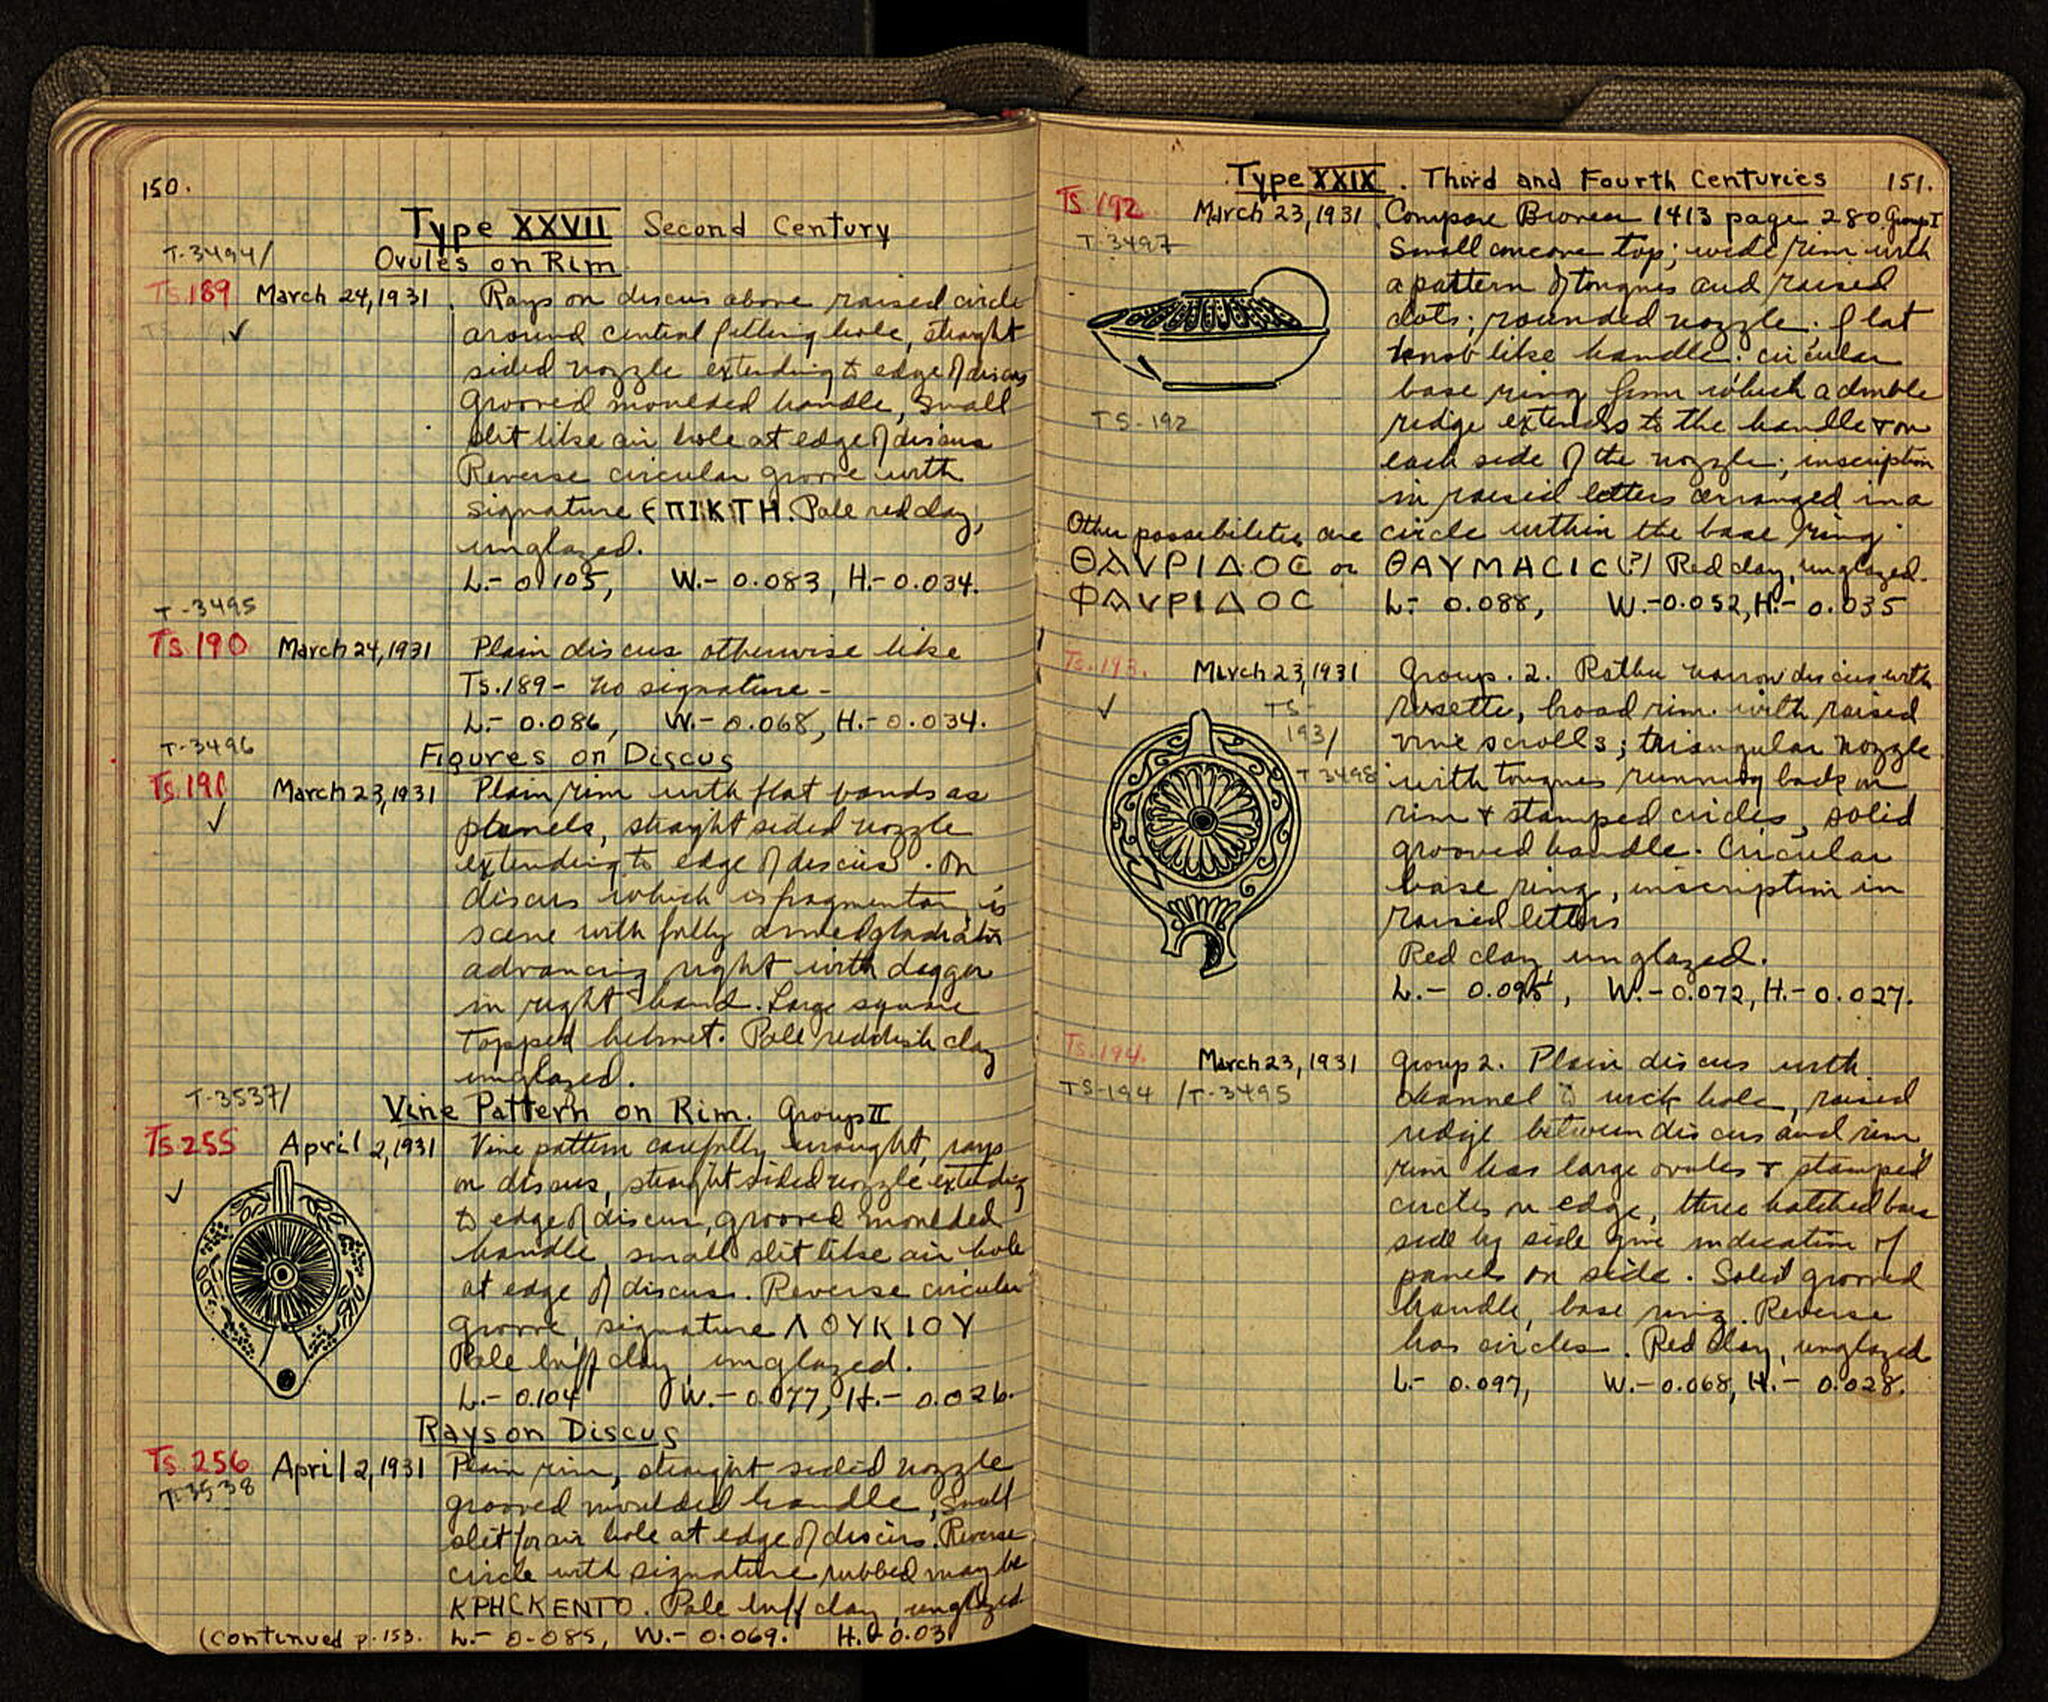 150.
Type XXVII Second Century
T-3494/
Ovules on Rim
Ts.189 March 24, 1931. Rays on discus above raised circle
around central filling hole, straight
sided nozzle extending to edge of discus
Grooved moulded handle, small
slit like air hole at edge of discus
Reverse circular groove with
signature ЄΠΙΚΤΗ. Pale red clay,
unglazed.
L.- 0.105, W.- 0.083, H.- 0.034.
T-3495
Ts.190 March 24, 1931 Plain discus otherwise like
Ts.189 - no signature -
L.- 0.086, W.- 0.068, H.- 0.034.
T-3496
Figures on Discus
Ts.191 March 23, 1931 Plain rim with flat bands as
panels, straight sided nozzle
extending to edge of discus. On
discus which is fragmentary, is
scene with fully armed gladiator
advancing right with dagger
in right hand. Large square
topped helmet. Pale reddish clay
unglazed.
T-3537/
Vine Pattern on Rim. Group II
Ts.255 April 2, 1931 Vine pattern carefully wrought, rays
on discus, straight sided nozzle extending
to edge of discus, grooved moulded
handle, small slit like air hole
at edge of discus. Reverse circular
groove, signature ΛΟΥΚΙΟΥ
Pale buff clay, unglazed.
L.- 0.104 W.- 0.077, H.- 0.026.
Rays on Discus
Ts.256 April 2, 1931 Plain rim, straight sided nozzle
T-3538
grooved moulded handle, small
slit for air hole at edge of discus. Reverse
circle with signature rubbed may be
ΚΡΗCΚΕΝΤΟ. Pale buff clay, unglazed
(Continued p.153. L.- 0.085, W.- 0.069. H.- 0.03
Type XXIX. Third and Fourth Centuries 151.
Ts.192 March 23, 1931. Compare Broneer 1413 page 280 Group I
T-3497
Small concave top; wide rim with
a pattern of tongues and raised
dots; rounded nozzle; flat
knob like handle; circular
base ring from which a double
TS-192
ridge extends to the handle + on
each side of the nozzle; inscription
in raised letters arranged in a
circle within the base ring
Other possibilities are
ΘΑΥΡΙΔΟC or ΘΑΥΜΑCΙC(?) Red clay, unglazed.
ΦΑΥΡΙΔΟC L.- 0.088, W.- 0.052, H.- 0.035
Ts.193. March 23, 1931 Group. 2. Rather narrow discus with
rosette, broad rim with raised
vine scrolls; triangular nozzle
TS-
193/
T 3498
with tongues running back on
rim + stamped circles, solid
grooved handle. Circular
base ring, inscription in
raised letters
Red clay, unglazed.
L.- 0.095, W.- 0.072, H.- 0.027.
Ts.194. March 23, 1931 Group 2. Plain discus with
TS-194 / T-3495
channel to wick hole, raised
ridge between discus and rim
rim has large ovules + stamped
circles on edge, three hatched bars
side by side give indication of
panels on side. Solid grooved
handle, base ring. Reverse
has circles. Red clay, unglazed
L.- 0.097, W.- 0.068, H.- 0.028.